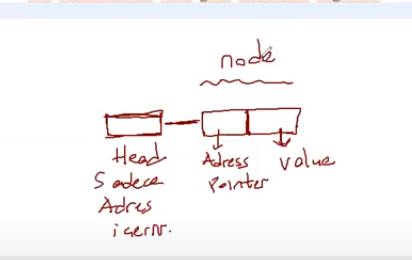 node
Head
Sadece
Adres
içerir.
Adress
Pointer
value